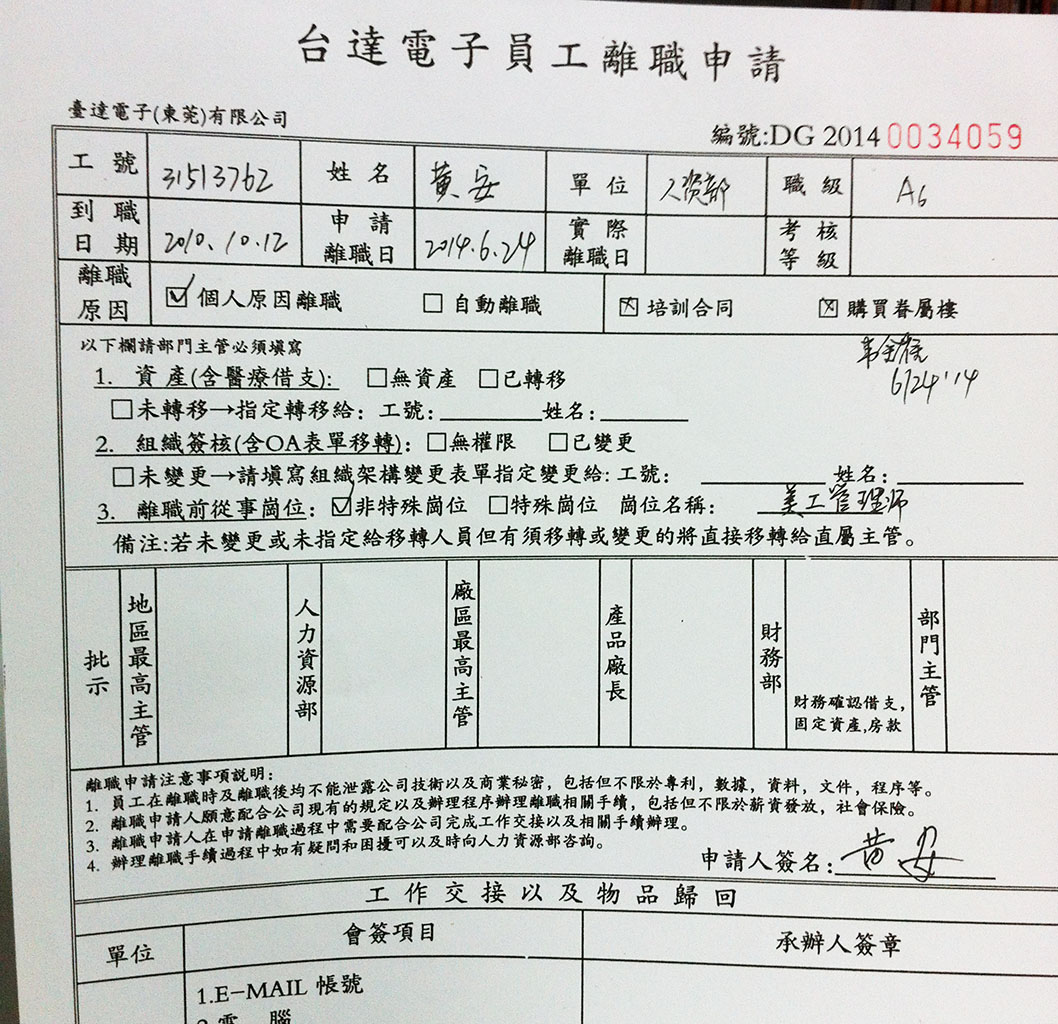 台達電子員工離職申請
臺達電子(東莞)有限公司
編號:DG 2014 0034059
工號 31513762 姓名 黃安 單位 人資部 職級 A6
到職日期 2010.10.12 申請離職日 2014.6.24 實際離職日 考核等級
離職原因 ☑個人原因離職 □自動離職 ☒培訓合同 ☒購買眷屬樓
以下欄請部門主管必須填寫
6/24'14
1. 資產(含醫療借支): □無資產 □已轉移
□未轉移→指定轉移給: 工號:______姓名:______
2. 組織簽核(含OA表單移轉): □無權限 □已變更
□未變更→請填寫組織架構變更表單指定變更給: 工號: ______ 姓名:______
3. 離職前從事崗位: ☑非特殊崗位 □特殊崗位 崗位名稱: 美工管理師
備注:若未變更或未指定給移轉人員但有須移轉或變更的將直接移轉給直屬主管。
批示 地區最高主管 人力資源部 廠區最高主管 產品廠長 財務部 部門主管
財務確認借支,
固定資產,房款
離職申請注意事項説明:
1. 員工在離職時及離職後均不能泄露公司技術以及商業秘密，包括但不限於專利，數據，資料，文件，程序等。
2. 離職申請人願意配合公司現有的規定以及辦理程序辦理離職相關手續，包括但不限於薪資發放，社會保險。
3. 離職申請人在申請離職過程中需要配合公司完成工作交接以及相關手續辦理。
4. 辦理離職手續過程中如有疑問和困擾可以及時向人力資源部咨詢。
申請人簽名: 黄安
工作交接以及物品歸回
單位 會簽項目 承辦人簽章
1.E-MAIL 帳號
2.電 腦